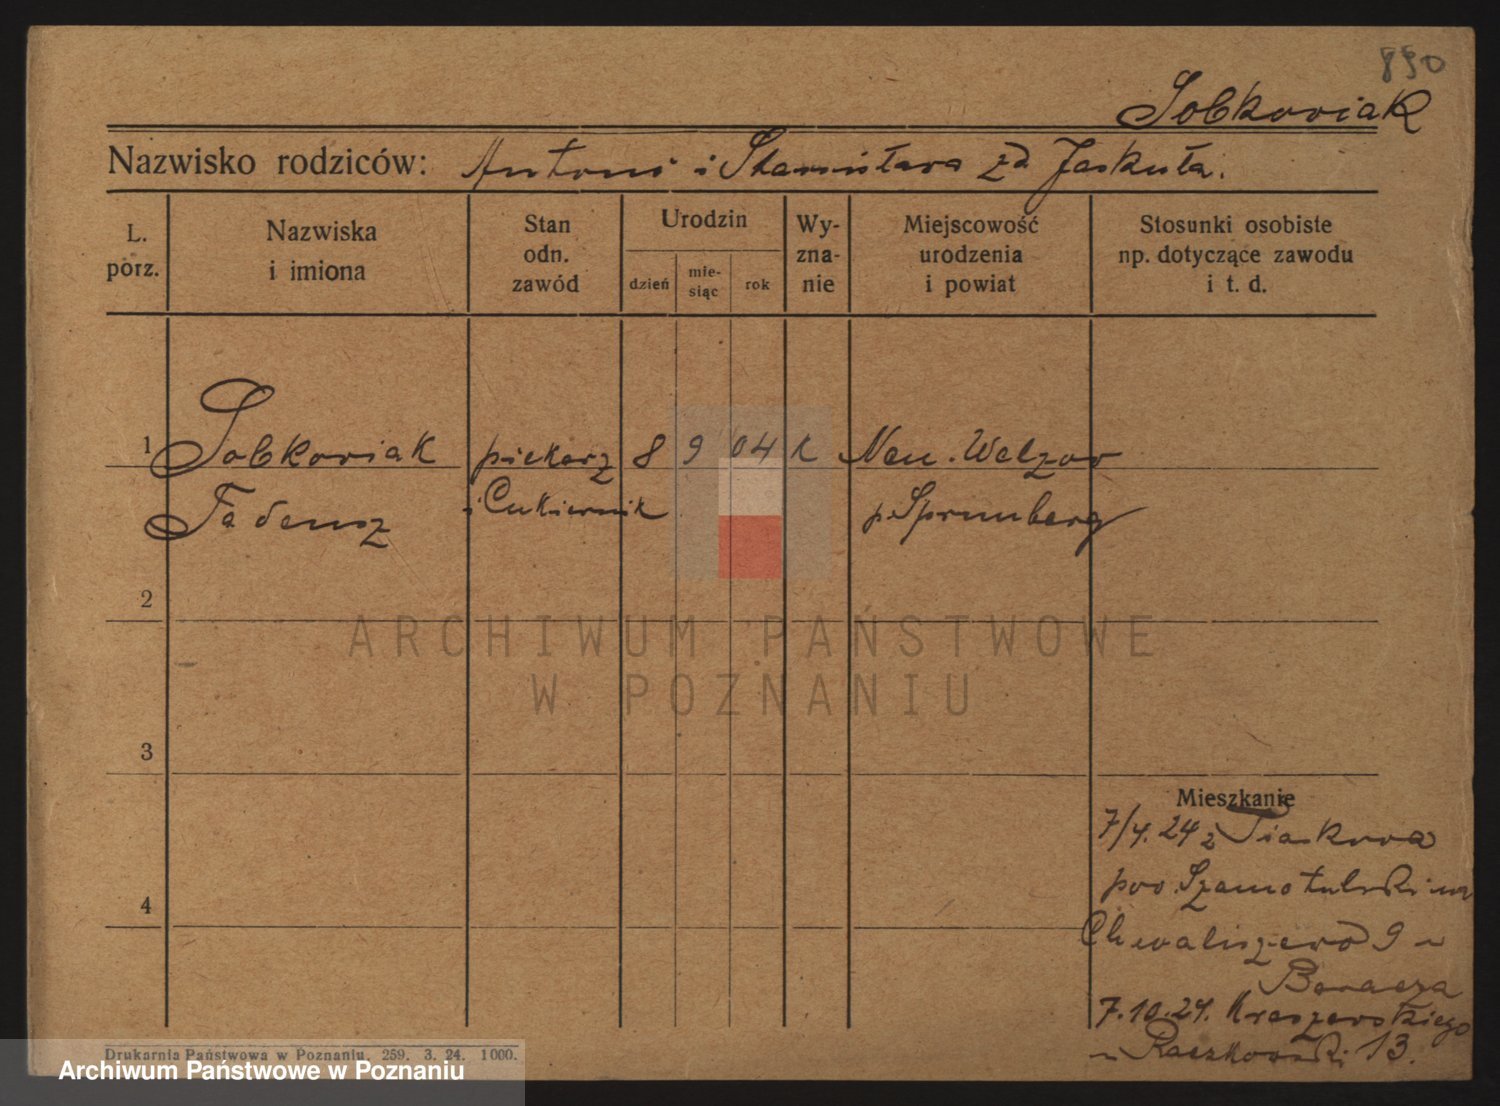 890
Sobkowiak
Nazwisko rodziców: Antoni i Stanisława zd Jaskuła.
L. porz.
Nazwiska i imiona
Stan odn. zawód
Urodzin
dzień
mie-siąc
rok
Wy-zna-nie
Miejscowość urodzenia i powiat
Stosunki osobiste np. dotyczące zawodu i t. d.
1 Sobkowiak piekarz 8 9 04 k Neu. Welzow
Tadeusz i Cukiernik p. Spremberg
2
ARCHIWUM PAŃSTWOWE
W POZNANIU
3
Mieszkanie
7/4. 24 z Piaskowa
pow. Szamotulski
4
Chwaliszewo 9
7.10.24. Kraszewskiego
Raczkowski 13.
Drukarnia Państwowa w Poznaniu. 259. 3. 24. 1000.
Archiwum Państwowe w Poznaniu